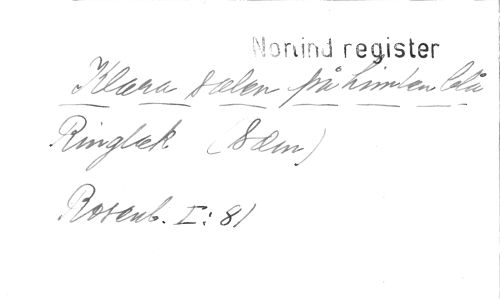 Norind register
Klara solen på himlen blå
Ringlek (Söm)
Rosenb. I: 81